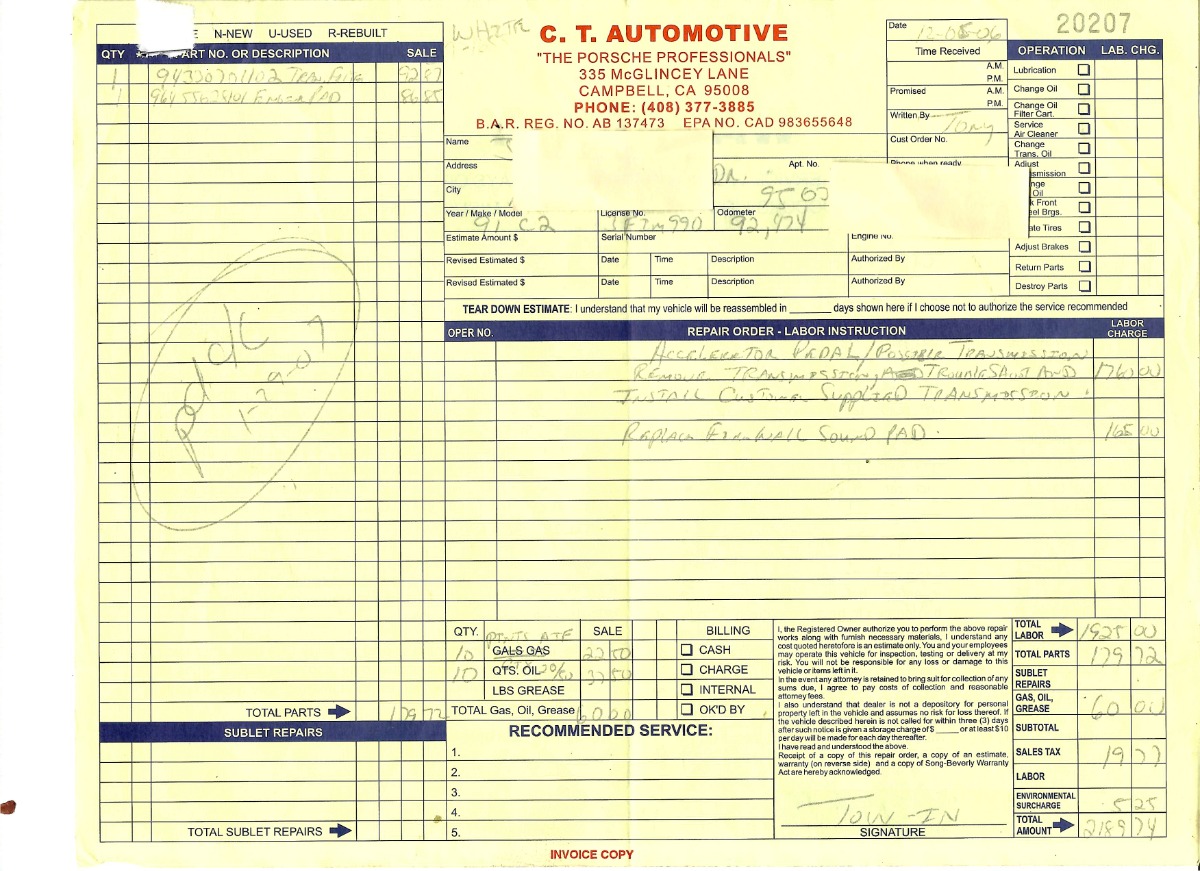 E N-NEW U-USED R-REBUILT
QTY ART NO. OR DESCRIPTION SALE
1 92 87
1 PAD 86 85
pd ck
1-29-07
TOTAL PARTS 179 72
SUBLET REPAIRS
TOTAL SUBLET REPAIRS
WHITE
C. T. AUTOMOTIVE
"THE PORSCHE PROFESSIONALS"
335 McGLINCEY LANE
CAMPBELL, CA 95008
PHONE: (408) 377-3885
B.A.R. REG. NO. AB 137473 EPA NO. CAD 983655648
20207
Date 12-05-06
Time Received
A.M.
P.M.
Promised A.M.
P.M.
Written By Tony
Cust Order No.
Phone when ready
Name
Address Dr. Apt. No.
City
Year / Make / Model 91 C2 License No. Odometer 92,474
Estimate Amount $ Serial Number Engine No.
Revised Estimated $ Date Time Description Authorized By
Revised Estimated $ Date Time Description Authorized By
OPERATION LAB. CHG.
Lubrication
Change Oil
Change Oil
Filter Cart.
Service
Air Cleaner
Change
Trans. Oil
Adjust
smission
nge
Oil
k Front
eel Brgs.
ate Tires
Adjust Brakes
Return Parts
Destroy Parts
TEAR DOWN ESTIMATE: I understand that my vehicle will be reassembled in ______ days shown here if I choose not to authorize the service recommended
OPER NO. REPAIR ORDER - LABOR INSTRUCTION LABOR CHARGE
ACCELERATOR PEDAL / POSSIBLE TRANSMISSION
REMOVE TRANSMISSION, AND TROUBLESHOOT AND 1760 00
INSTALL CUSTOMER SUPPLIED TRANSMISSION.
REPLACE FIREWALL SOUND PAD. 165 00
QTY. SALE BILLING
PINTS ATF
10 GALS GAS 22 50 CASH
10 QTS. OIL 37 50 CHARGE
LBS GREASE INTERNAL
TOTAL Gas, Oil, Grease 60 00 OK'D BY
RECOMMENDED SERVICE:
1.
2.
3.
4.
5.
I, the Registered Owner authorize you to perform the above repair
works along with furnish necessary materials, I understand any
cost quoted heretofore is an estimate only. You and your employees
may operate this vehicle for inspection, testing or delivery at my
risk. You will not be responsible for any loss or damage to this
vehicle or items left in it.
In the event any attorney is retained to bring suit for collection of any
sums due, I agree to pay costs of collection and reasonable
attorney fees.
I also understand that dealer is not a depository for personal
property left in the vehicle and assumes no risk for loss thereof. If
the vehicle described herein is not called for within three (3) days
after such notice is given a storage charge of $ _____ or at least $10
per day will be made for each day thereafter.
I have read and understood the above.
Receipt of a copy of this repair order, a copy of an estimate,
warranty (on reverse side) and a copy of Song-Beverly Warranty
Act are hereby acknowledged.
TOW-IN
SIGNATURE
TOTAL LABOR 1925 00
TOTAL PARTS 179 72
SUBLET REPAIRS
GAS, OIL, GREASE 60 00
SUBTOTAL
SALES TAX 19 77
LABOR
ENVIRONMENTAL SURCHARGE 5 25
TOTAL AMOUNT 2189 74
INVOICE COPY